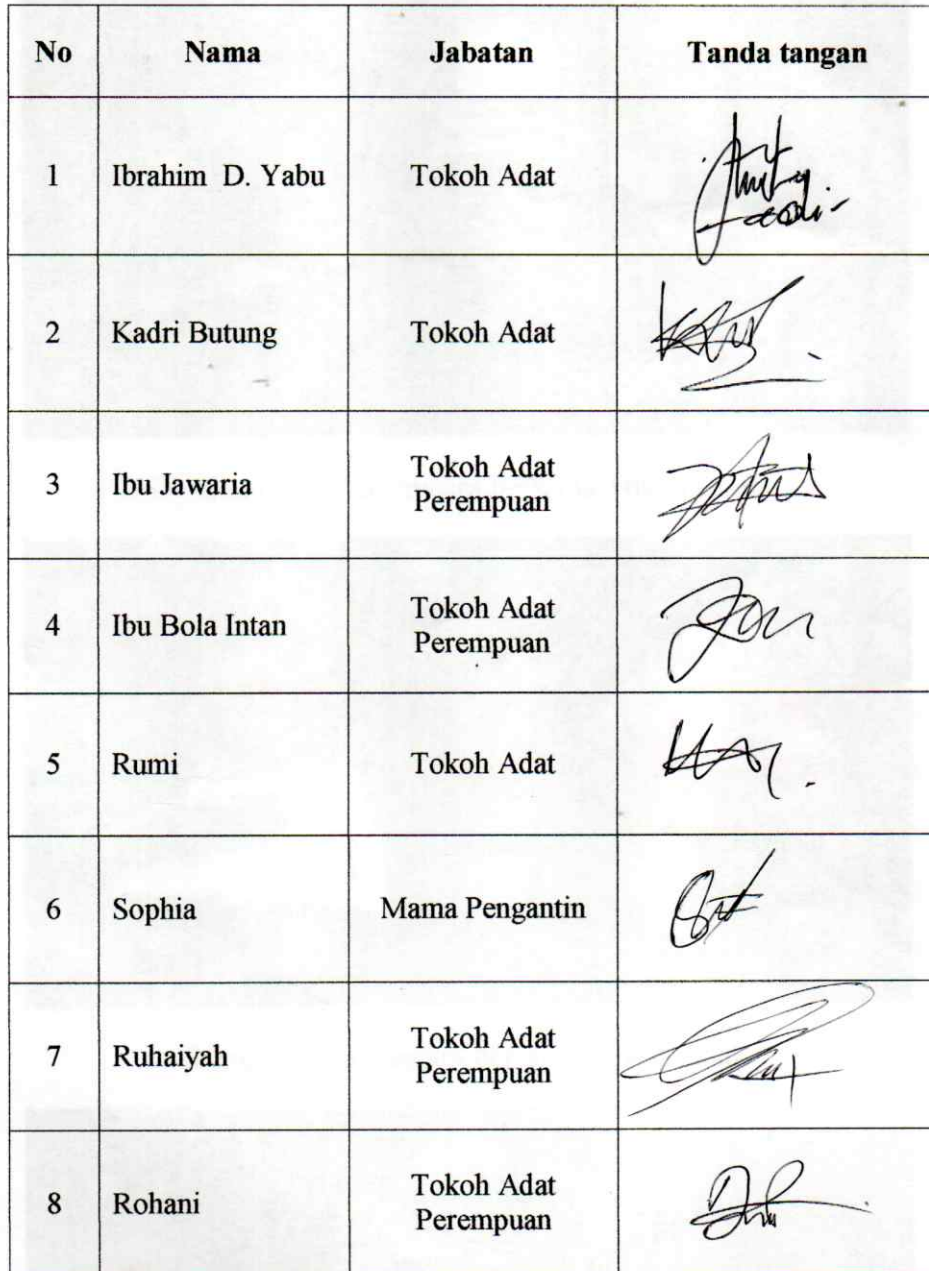 No Nama Jabatan Tanda tangan
1 Ibrahim D. Yabu Tokoh Adat
2 Kadri Butung Tokoh Adat
3 Ibu Jawaria Tokoh Adat
Perempuan
4 Ibu Bola Intan Tokoh Adat
Perempuan
5 Rumi Tokoh Adat
6 Sophia Mama Pengantin
7 Ruhaiyah Tokoh Adat
Perempuan
8 Rohani Tokoh Adat
Perempuan